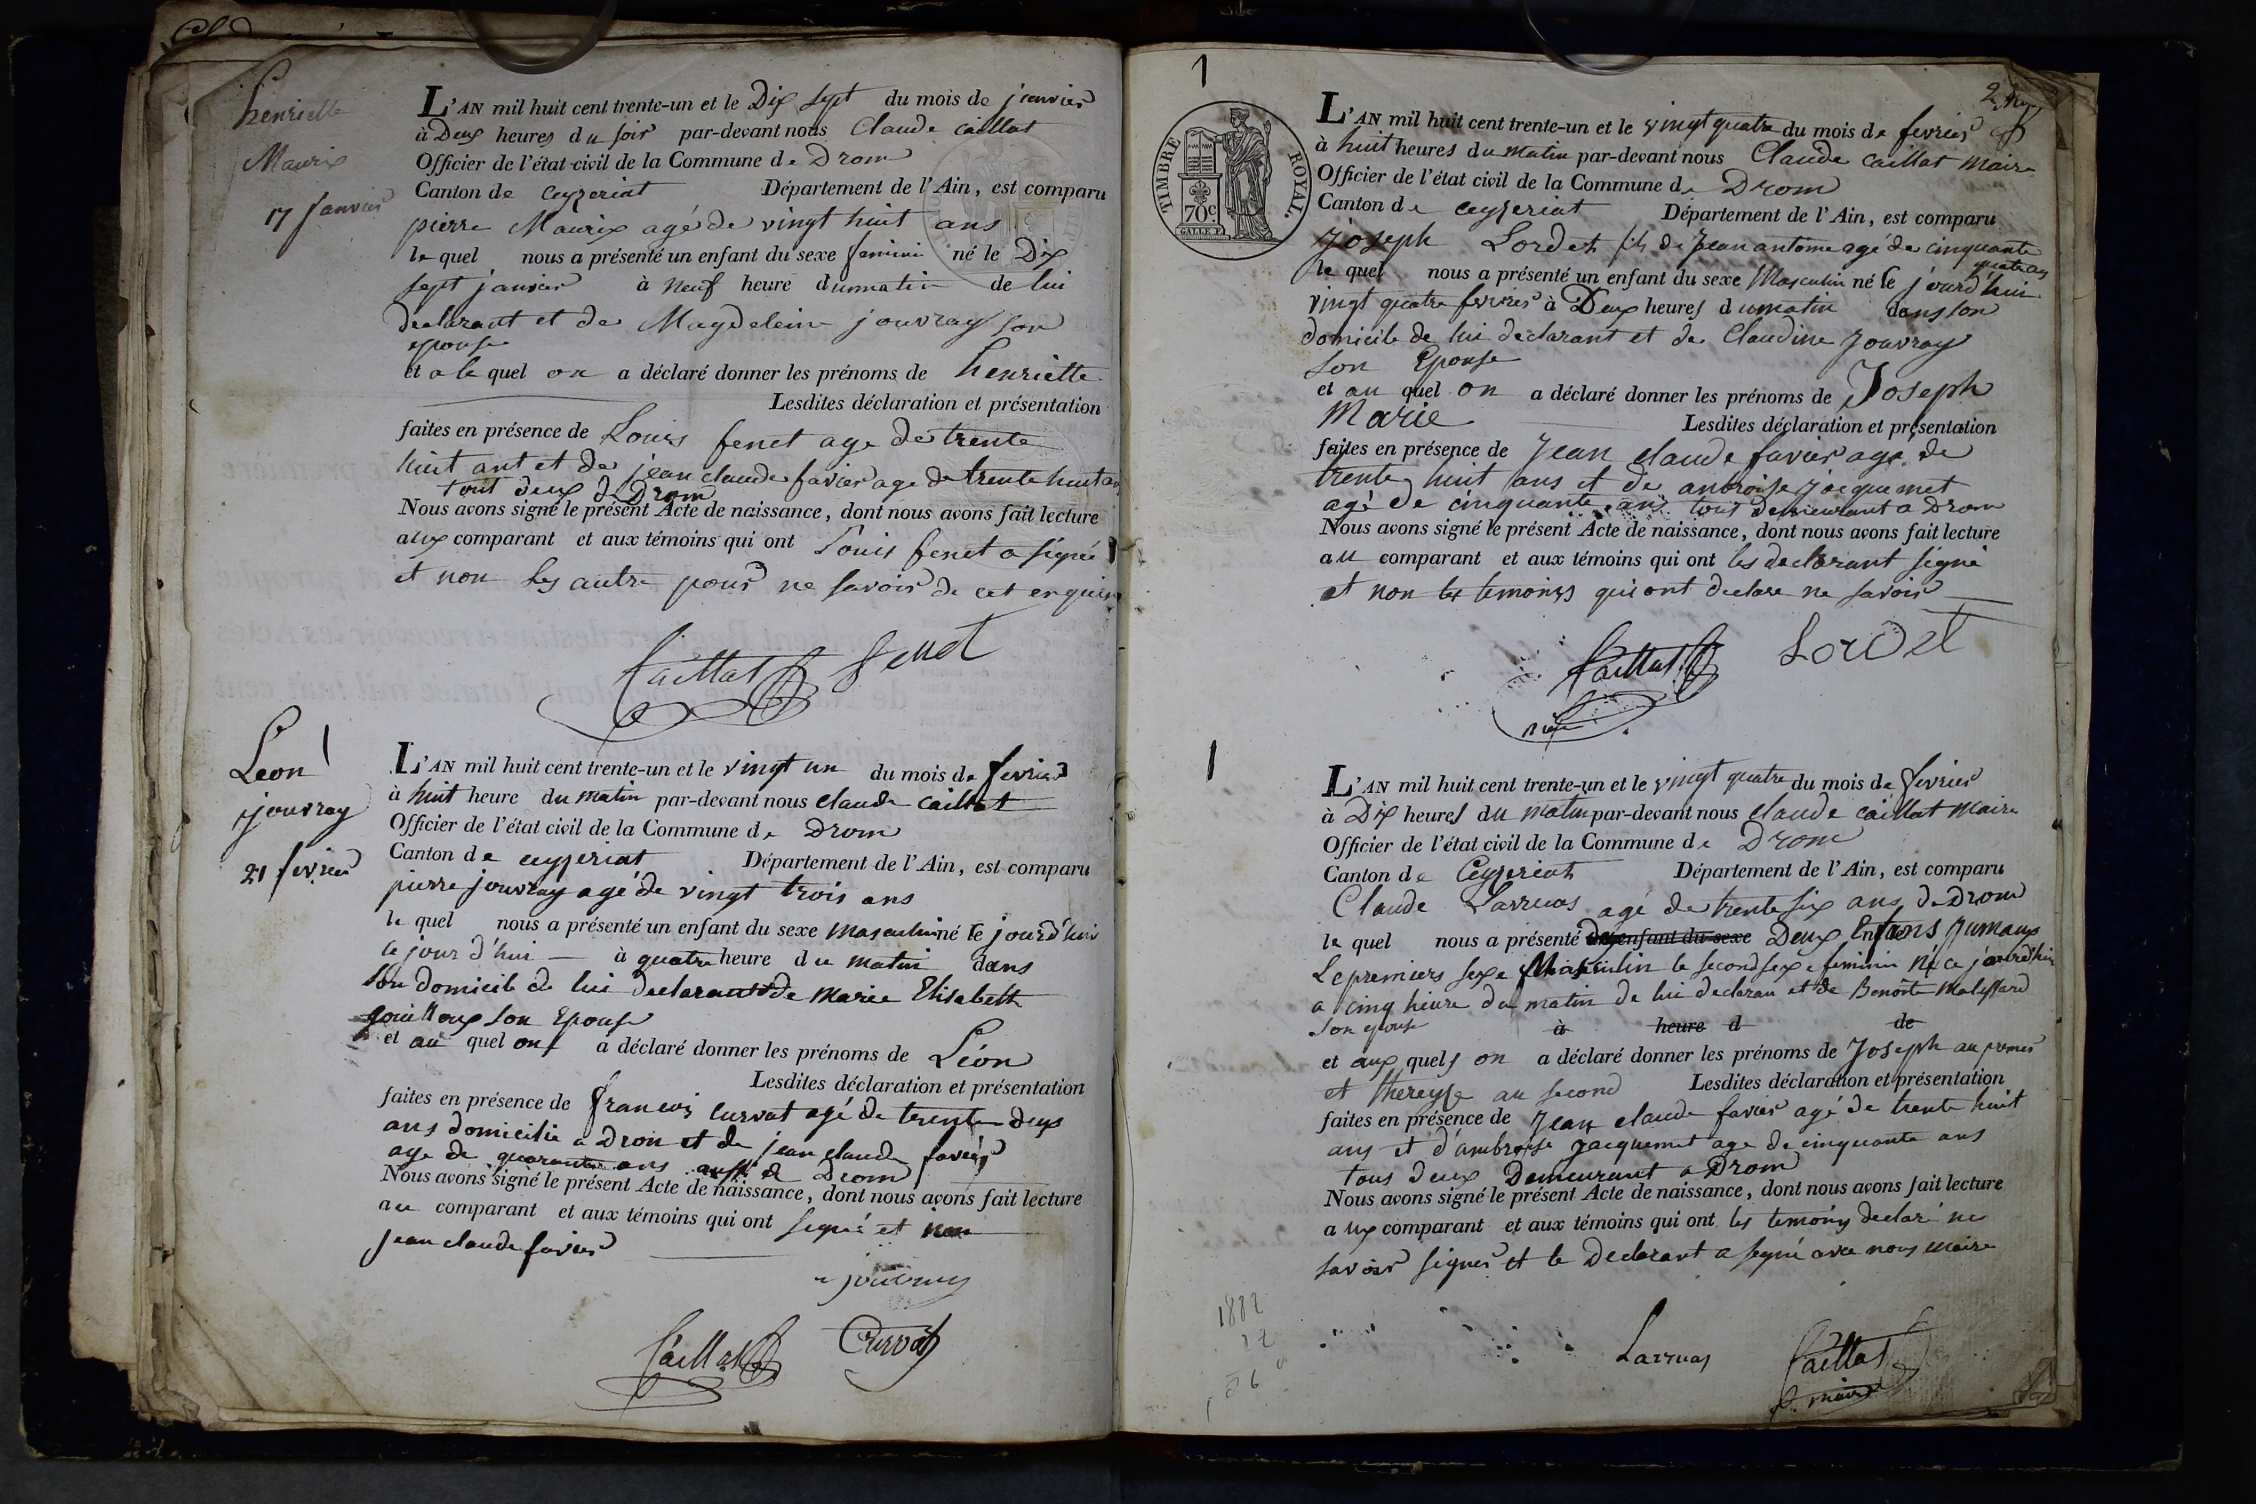 henriette
Maurix
17 Janvier
L'AN mil huit cent trente-un et le Dix sept du mois de janvier
à Deux heures du soir par-devant nous Claude caillat
Officier de l'état-civil de la Commune de Drom
Canton de ceyzeriat Département de l'Ain, est comparu
pierre Maurix agé de vingt huit ans
le quel nous a présenté un enfant du sexe feminin né le Dix
sept janvier à neuf heure du matin de lui
declarant et de Magdeleine jouvray son
epouse
et a le quel on a déclaré donner les prénoms de henriette
Lesdites déclaration et présentation
faites en présence de Louis fenet age de trente
huit ant et de jean claude favier age de trente huit ans
tout deux de Drom
Nous avons signé le présent Acte de naissance, dont nous avons fait lecture
aux comparant et aux témoins qui ont Louis fenet a signé
et non les autre pour ne savoir de cet enquis
Caillat fenet
Léon
jouvray
21 fevrier
L'AN mil huit cent trente-un et le vingt un du mois de fevrier
à huit heure du matin par-devant nous claude caillat
Officier de l'état civil de la Commune de Drom
Canton de ceyzeriat Département de l'Ain, est comparu
pierre jouvray agé de vingt trois ans
le quel nous a présenté un enfant du sexe masculin né le jourd'hui
ce jour d'hui à quatre heure du matin dans
son domicile de lui declarant et de Marie Elisabeth
gouilloux son Epouse
et au quel ont a déclaré donner les prénoms de Léon
Lesdites déclaration et présentation
faites en présence de francois curvat agé de trente deux
ans domicilié a Drom et de jean claude favier
age de quarante ans aussi de Drom
Nous avons signé le présent Acte de naissance, dont nous avons fait lecture
au comparant et aux témoins qui ont signé et non
jean claude favier
jouvray
Caillat Curvat
1
2
TIMBRE ROYAL.
70 c.
L'AN mil huit cent trente-un et le vingt quatre du mois de fevrier
à huit heures du matin par-devant nous Claude caillat maire
Officier de l'état civil de la Commune de Drom
Canton de ceyzeriat Département de l'Ain, est comparu
Joseph Lordet fils de jean antoine agé de cinquante
quatre ans
le quel nous a présenté un enfant du sexe Masculin né le jourd'huin
vingt quatre fevrier à Deux heures du matin dans son
domicile de lui déclarant et de Claudine Jouvray
son Epouse
et au quel on a déclaré donner les prénoms de Joseph
Marie Lesdites déclaration et présentation
faites en présence de Jean claude favier agé de
trente huit ans et de anbroise jacquemet
agé de cinquante ans tout demeurant a Drom
Nous avons signé le présent Acte de naissance, dont nous avons fait lecture
au comparant et aux témoins qui ont les declarant signé
et non les temoins qui ont declare ne savoir
Caillat Lordet
1
L'AN mil huit cent trente-un et le vingt quatre du mois de fevrier
à Dix heures du matin par-devant nous claude caillat maire
Officier de l'état civil de la Commune de Drom
Canton de Ceyzeriat Département de l'Ain, est comparu
Claude Larruas agé de trente six ans de Drom
le quel nous a présenté un enfant du sexe Deux Enfans Jumaux
Le premiers sexe Masculin le second sexe feminin né ce jourd'hui
a cinq heure du matin de lui declaran et de Benoite Malessard
son epouse à heure d de
et aux quels on a déclaré donner les prénoms de Joseph au premier
et thereysse au second Lesdites déclaration et présentation
faites en présence de Jean claude favier agé de trente huit
ans et d'ambroise Jacquemet age de cinquante ans
tous deux Demeurant a Drom
Nous avons signé le présent Acte de naissance, dont nous avons fait lecture
aux comparant et aux témoins qui ont les temoins declaré ne
savoir signer et le Declarant a signé avec nous maire
Larruas Caillat
maire